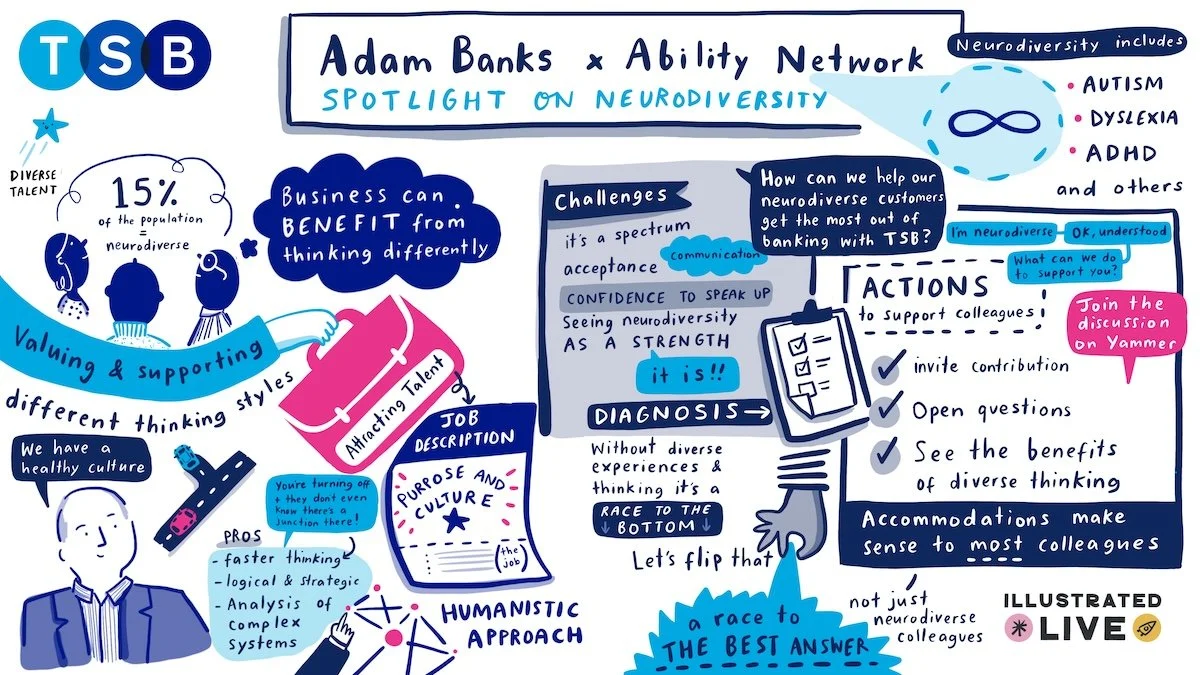 TSB
Adam Banks x Ability Network
SPOTLIGHT ON NEURODIVERSITY
Neurodiversity includes
• AUTISM
• DYSLEXIA
• ADHD
and others
DIVERSE
TALENT
15%
of the population
=
neurodiverse
Business can
BENEFIT from
thinking differently
Valuing & supporting
different thinking styles
Attracting Talent
JOB
DESCRIPTION
PURPOSE AND
CULTURE
(the
job)
We have a
healthy culture
You're turning off
+ they don't even
know there's a
junction there!
PROS
- faster thinking
- logical & strategic
- Analysis of
complex
systems
HUMANISTIC
APPROACH
Challenges
it's a spectrum
acceptance
communication
CONFIDENCE TO SPEAK UP
Seeing neurodiversity
AS A STRENGTH
it is!!
DIAGNOSIS →
Without diverse
experiences &
thinking it's a
RACE TO THE
↓ BOTTOM ↓
Let's flip that
a race to
THE BEST ANSWER
How can we help our
neurodiverse customers
get the most out of
banking with TSB?
I'm neurodiverse
OK, understood
What can we do
to support you?
ACTIONS
to support colleagues!
Join the
discussion
on Yammer
✓ invite contribution
✓ Open questions
✓ See the benefits
of diverse thinking
Accommodations make
sense to most colleagues
not just
neurodiverse
colleagues
ILLUSTRATED
LIVE